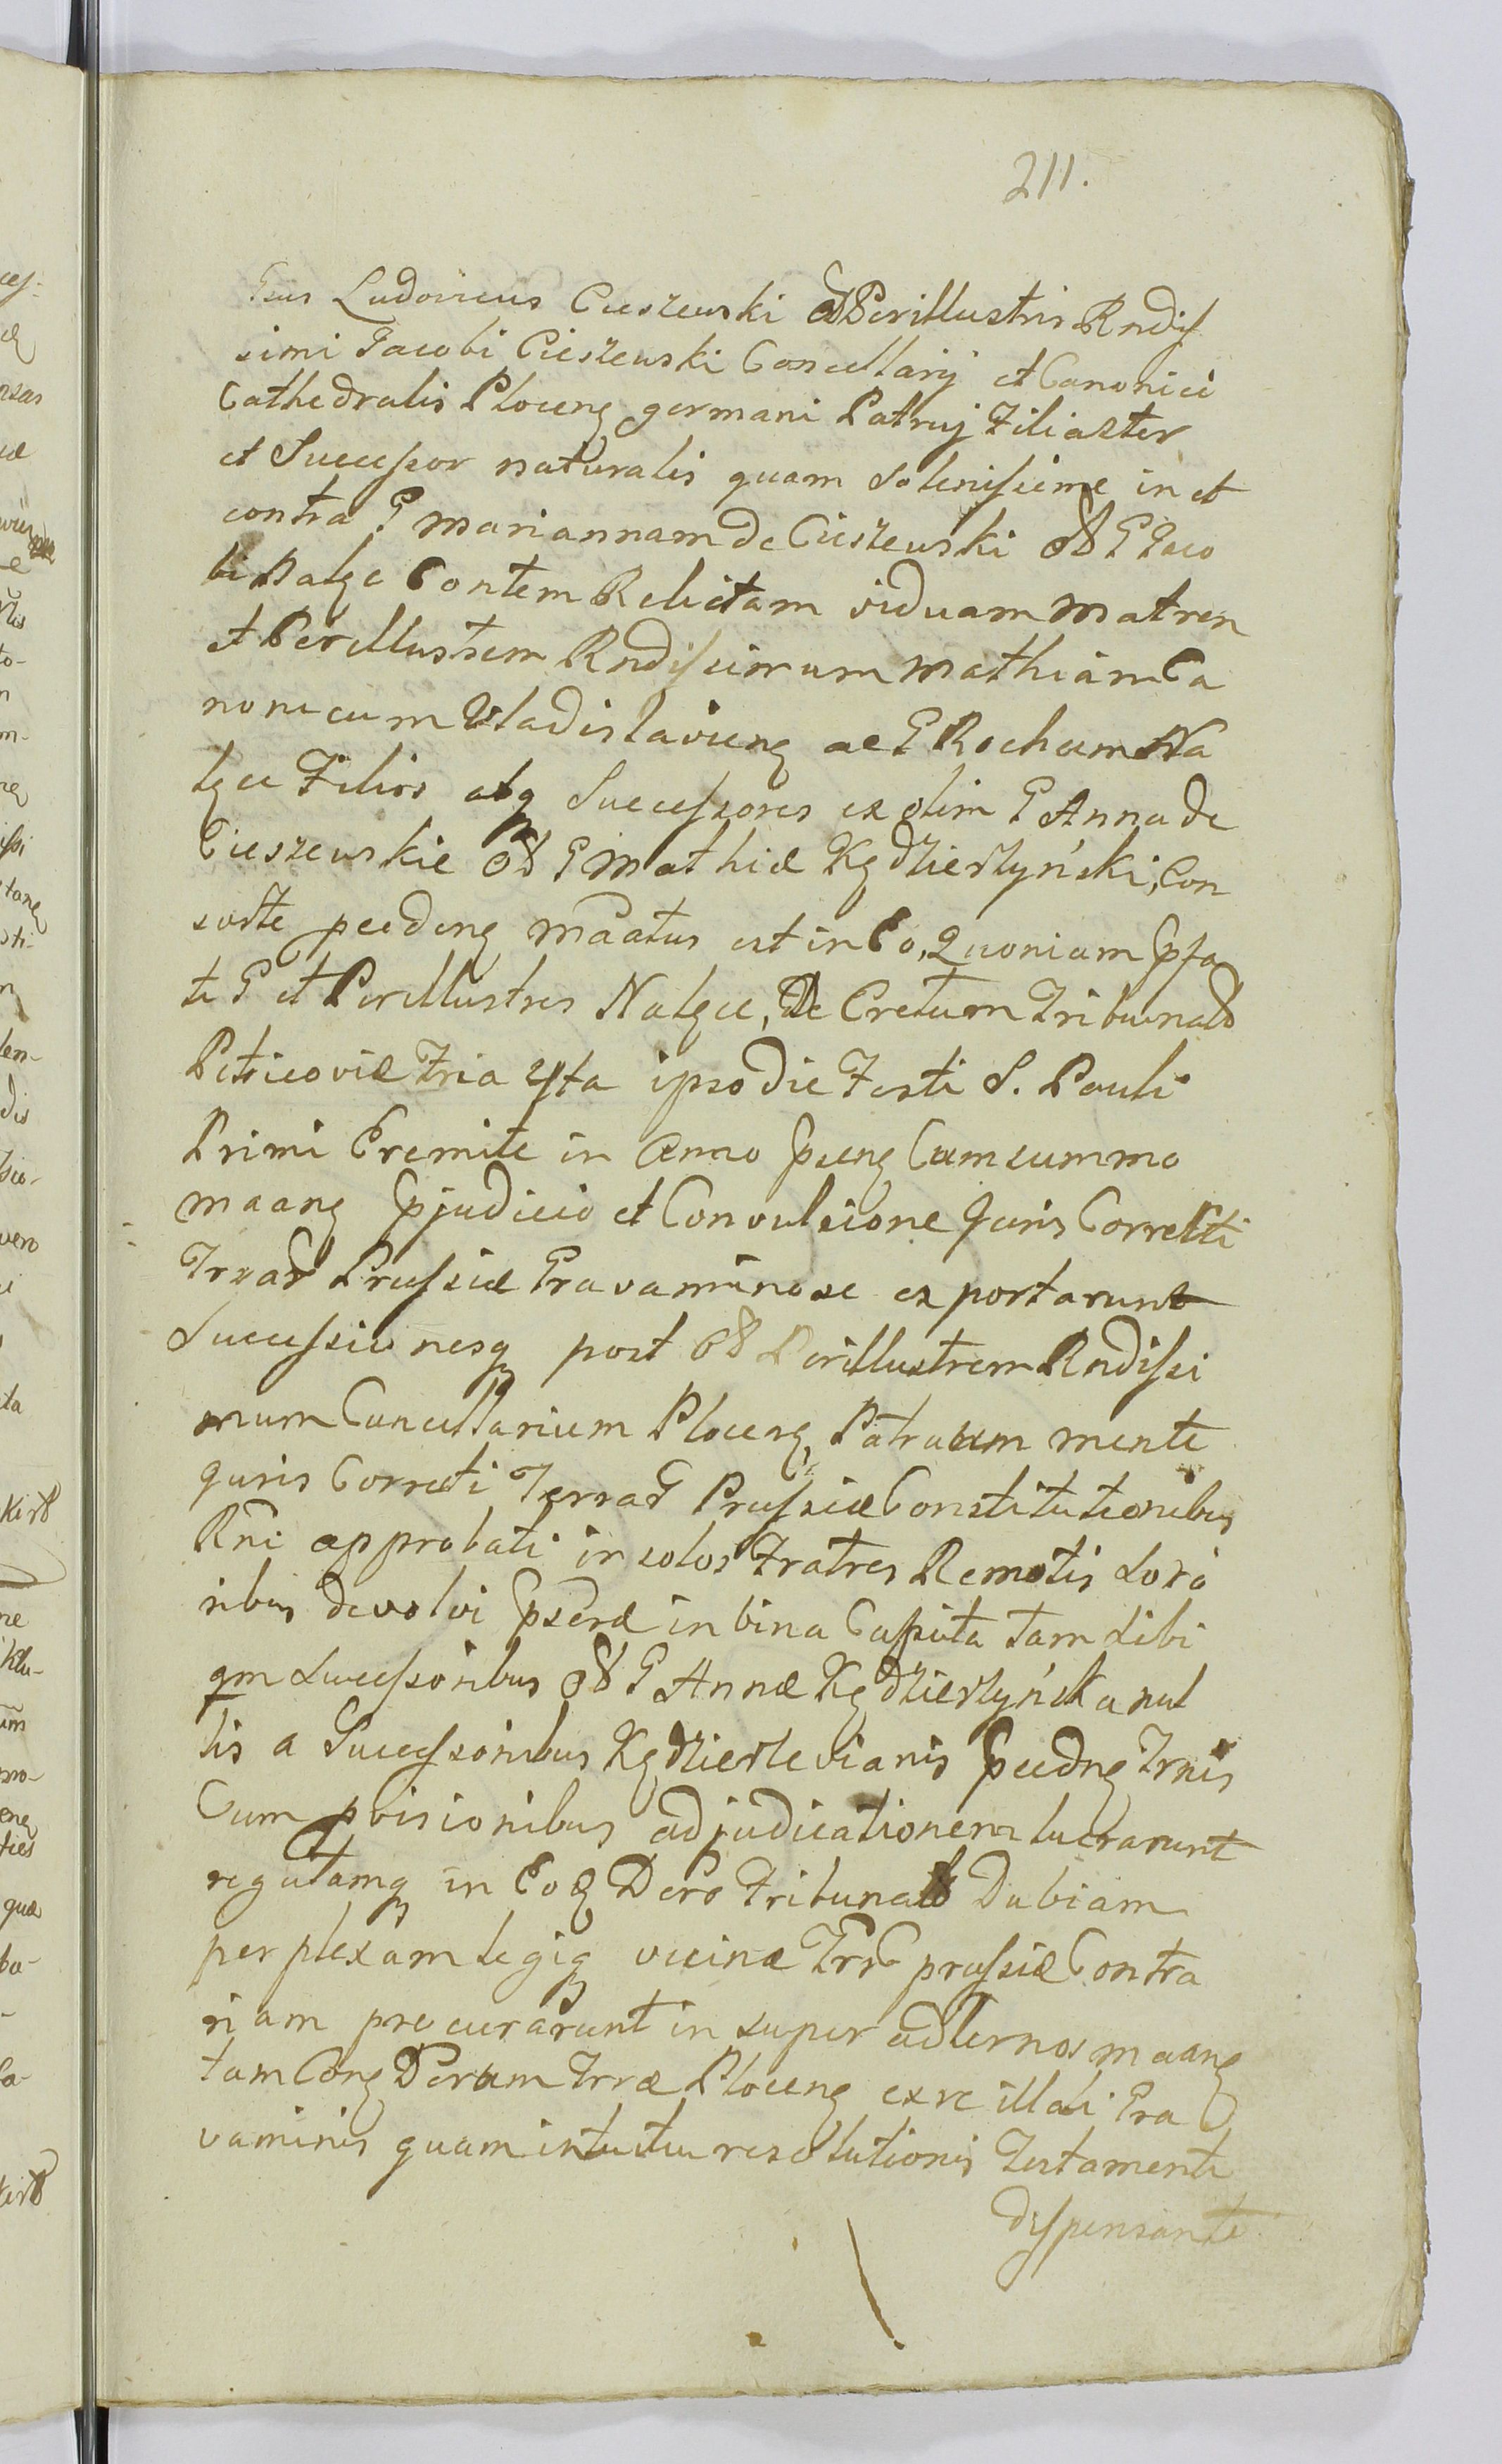 211.
Gsus Ludovicus Cieszewski Perillustris Rndis
simi Jacobi Cieszewski Cancellarij et Canonici
Cathedralis Plocen germani Patruj Filiaster
et Successor naturalis quam solenissime in et
contra G Mariannam de Cieszewski G Jaco
bi Nałęc Contem Relictam viduam Matrem
et Perillustrem Rndissimum Mathiam Ca
nonicum Vladislavien ac G Rochum Na
łęcz Filios atq Successores ex olim G Anna de
Cieszewskie G Mathiæ Kędzierzyński, Con
sorte pceden maatus est in Eo, Quoniam pfa
ti G et Perillustres Nałęcz, De Cretum Tribunal
Petricoviæ Fria 4ta ipso die Festi S. Pauli
Primi Eremite in Anno pnen Cum summo
maan pjudicio et Convulsione Juris Correcti
Trrar Prussiæ Gravaminose exportarunt
Successionesq post Perillustrem Rndissi
mum Cancellarium Plocen, Patruum mente
Juris Correcti Terrar Prussiæ Constitutionibus
Rni approbati in solos Fratres Remotis Soro
ribus devolvi in bina Capita tam sibi
qm Successoribus G Annæ Kędzierzyńska nul
lis a Successoribus Kędzierzevianis
Cum pvisionibus adjudicationem lucrarunt
regulamq in Eo Dero Tribunal Dubiam
perplexam legiq vicinæ Trr prussiæ Contra
riam procurarunt insuper adternos maan
tam Con Derum Trræ Plocen ex re illati Gra
vaminis quam intuitu resolutionis Testamenti
dispensante